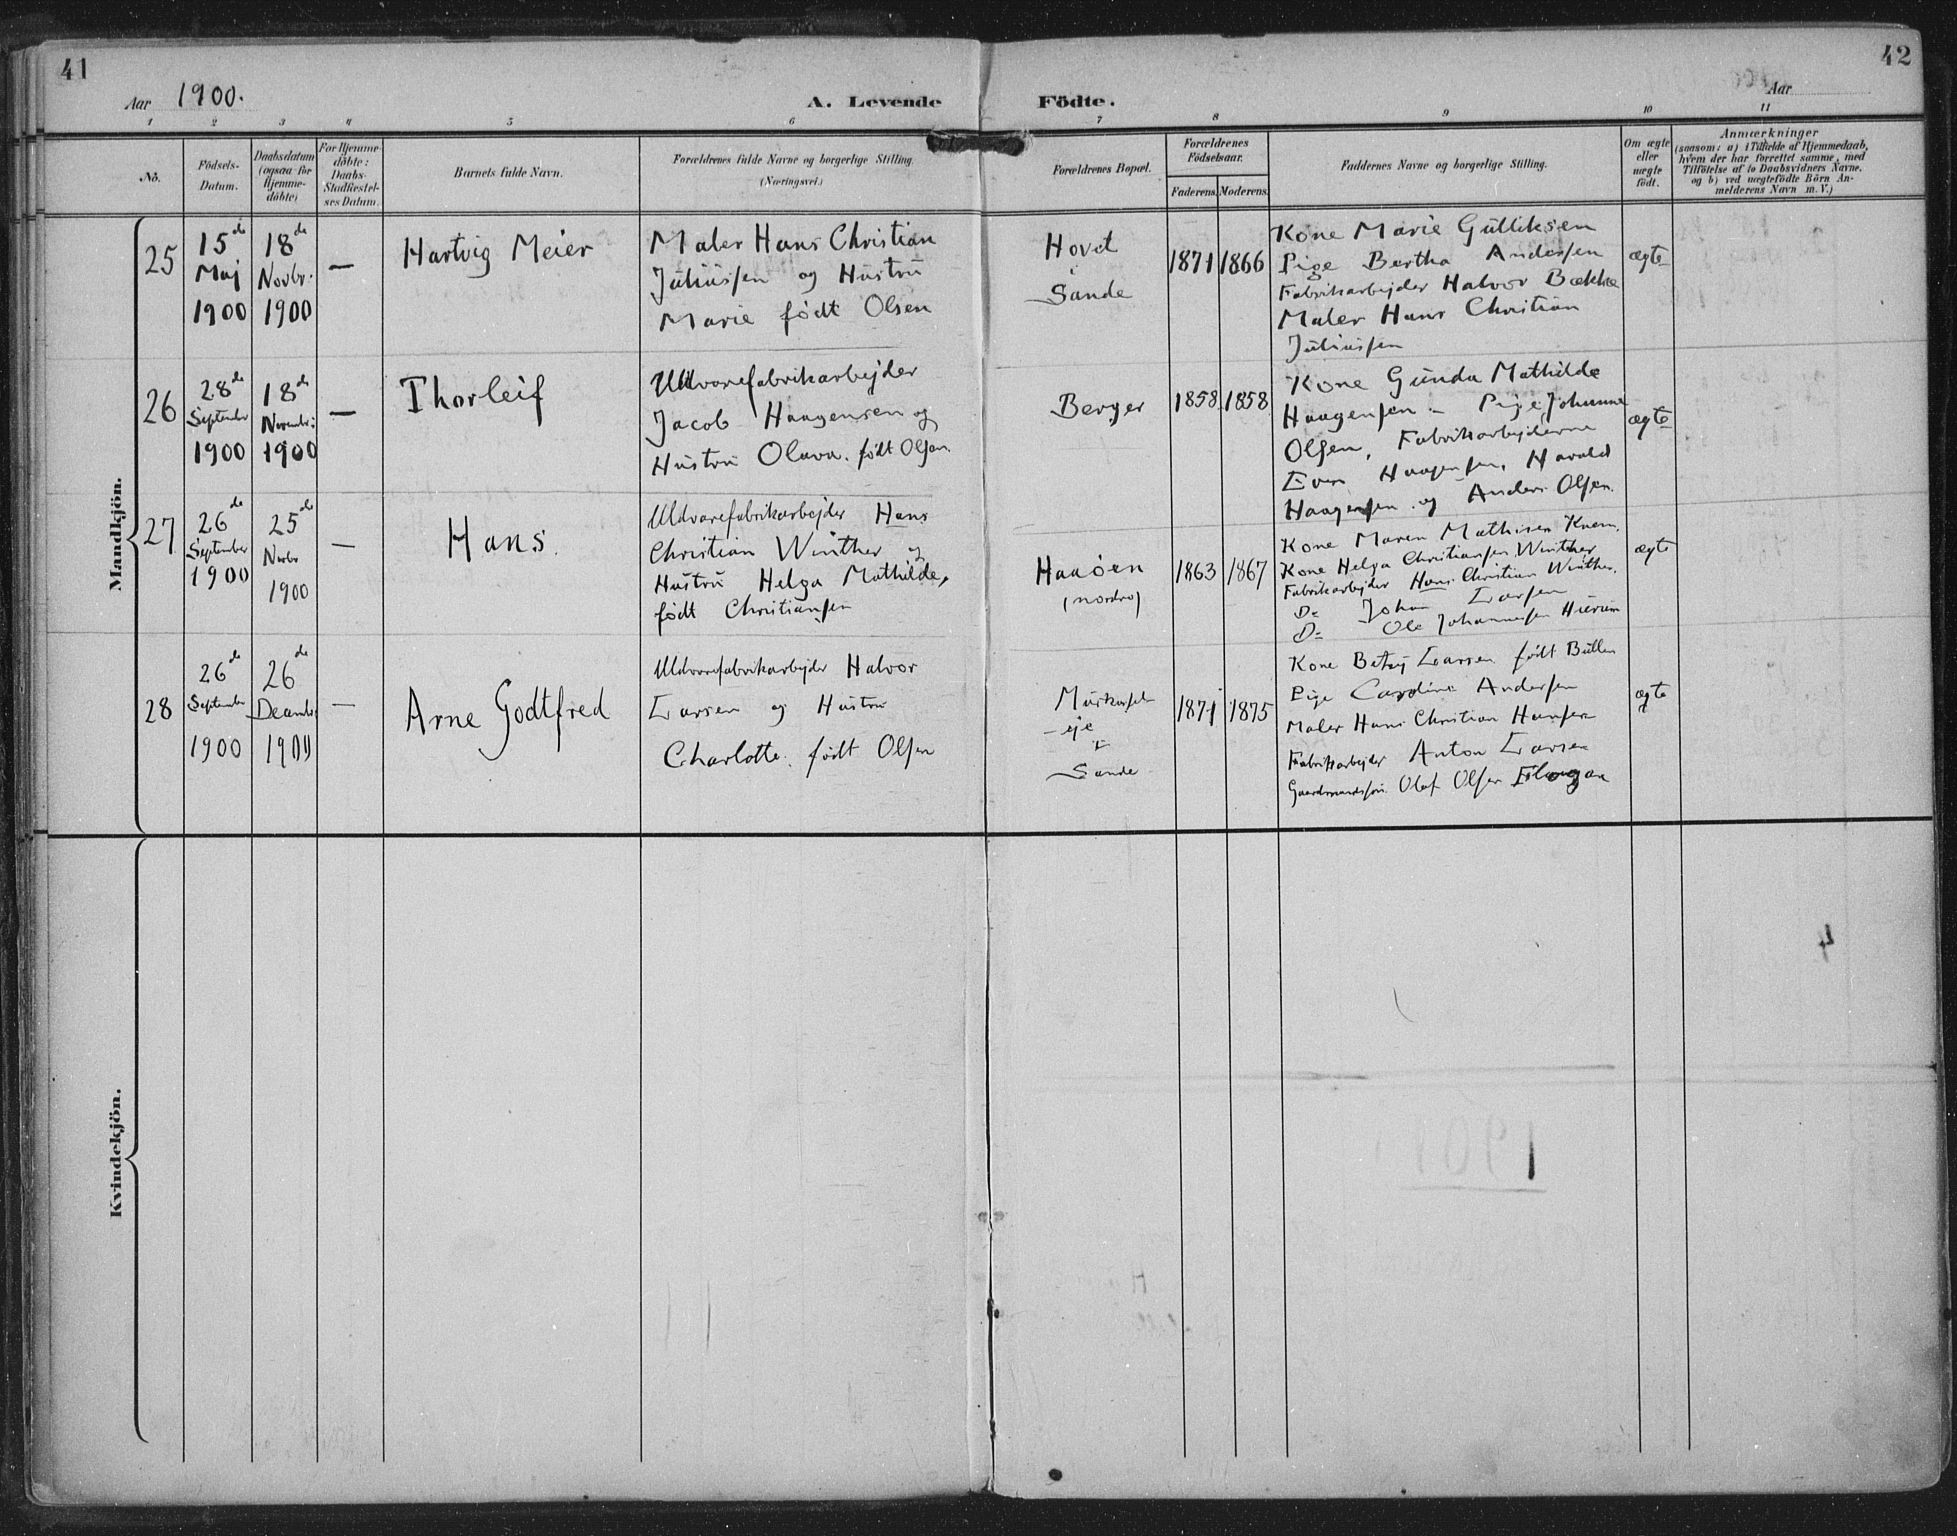 41
42
Aar 1900.
A. Levende Födte.
Aar
1 2 3 4 5 6 7 8 9 10 11
No.
Födsels-
Datum.
Daabsdatum
(ogsaa for
Hjemme-
döbte)
For Hjemme-
döbte:
Daabs-
Stadfæstel-
ses Datum.
Barnets fulde Navn.
Forældrenes fulde Navne og borgerlige Stilling.
(Næringsvei.)
Forældrenes Bopæl.
Forældrenes
Födselsaar.
Faderens. Moderens.
Faddernes Navne og borgerlige Stilling.
Om ægte
eller
uægte
födt.
Anmærkninger
(saasom: a) i Tilfælde af Hjemmedaab,
hvem der har forrettet samme, med
Tilföielse af to Daabsvidners Navne,
og b) ved uægtefödte Börn An-
melderens Navn m. V.)
Mandkjön.
25
15de
Maj
1900
18de
Novbr.
1900
—
Hartvig Meier
Maler Hans Christian
Juliussen og Hustru
Marie født Olsen
Hovet
i
Sande
1871 1866
Kone Marie Gulliksen
Pige Bertha Andersen
Fabrikarbejder Halvor Bække
Maler Hans Christian
Juliussen
ægte
26
28de
September
1900
18de
Novembr:
1900
—
Thorleif
Uldvarefabrikarbejder
Jacob Haagensen og
Hustru Olava. født Olsen.
Berger
1858 1858
Kone Gunda Mathilde
Haagensen – Pige Johanne
Olsen, Fabrikarbejderne
Even Haagensen, Harald
Haagensen og Anders Olsen.
ægte
27
26de
September
1900
25de
Novbr
1900
—
Hans.
Uldvarefabrikarbejder Hans
Christian Winther og
Hustru Helga Mathilde,
født Christiansen
Haaöen
(nordre)
1863 1867
Kone Maren Mathisen
Kone Helga Christiansen Winther
Fabrikarbejder Hans Christian Winther.
Do Johan Larsen
Do Ole Johannesen
ægte
28
26de
September
1900
26de
Decembr:
1900
—
Arne Godtfred
Uldvarefabrikarbejder Halvor
Larsen og Hustru
Charlotte. født Olsen
eje
i
Sande
1871 1875
Kone Betsy Larsen født
Pige Caroline Andersen
Maler Hans Christian Hansen
Fabrikarbejder Anton Larsen
Gaardmandssøn Olaf Olsen
ægte
Kvindekjön.